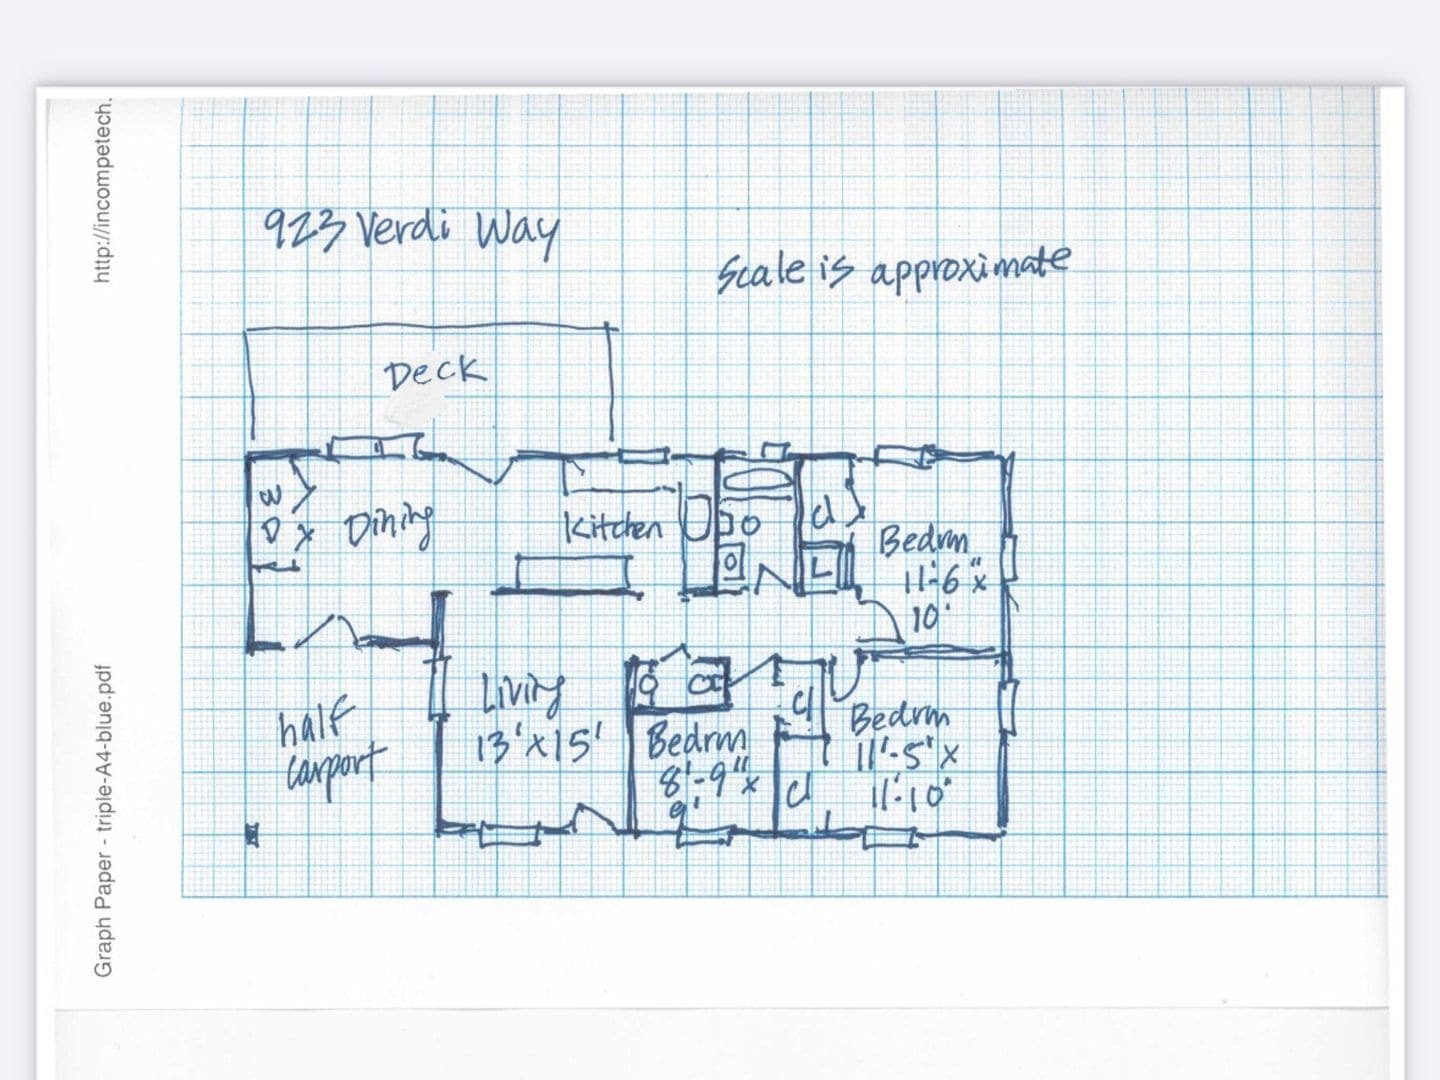 http://incompetech.
Graph Paper - triple-A4-blue.pdf
923 Verdi Way
Scale is approximate
Deck
W
D
Dining
Kitchen
cl
L
Bedrm
11'-6"x
10'
half
carport
Living
13'x15'
Bedrm
8'-9"x
9'
cl
cl
Bedrm
11'-5"x
11'-10"